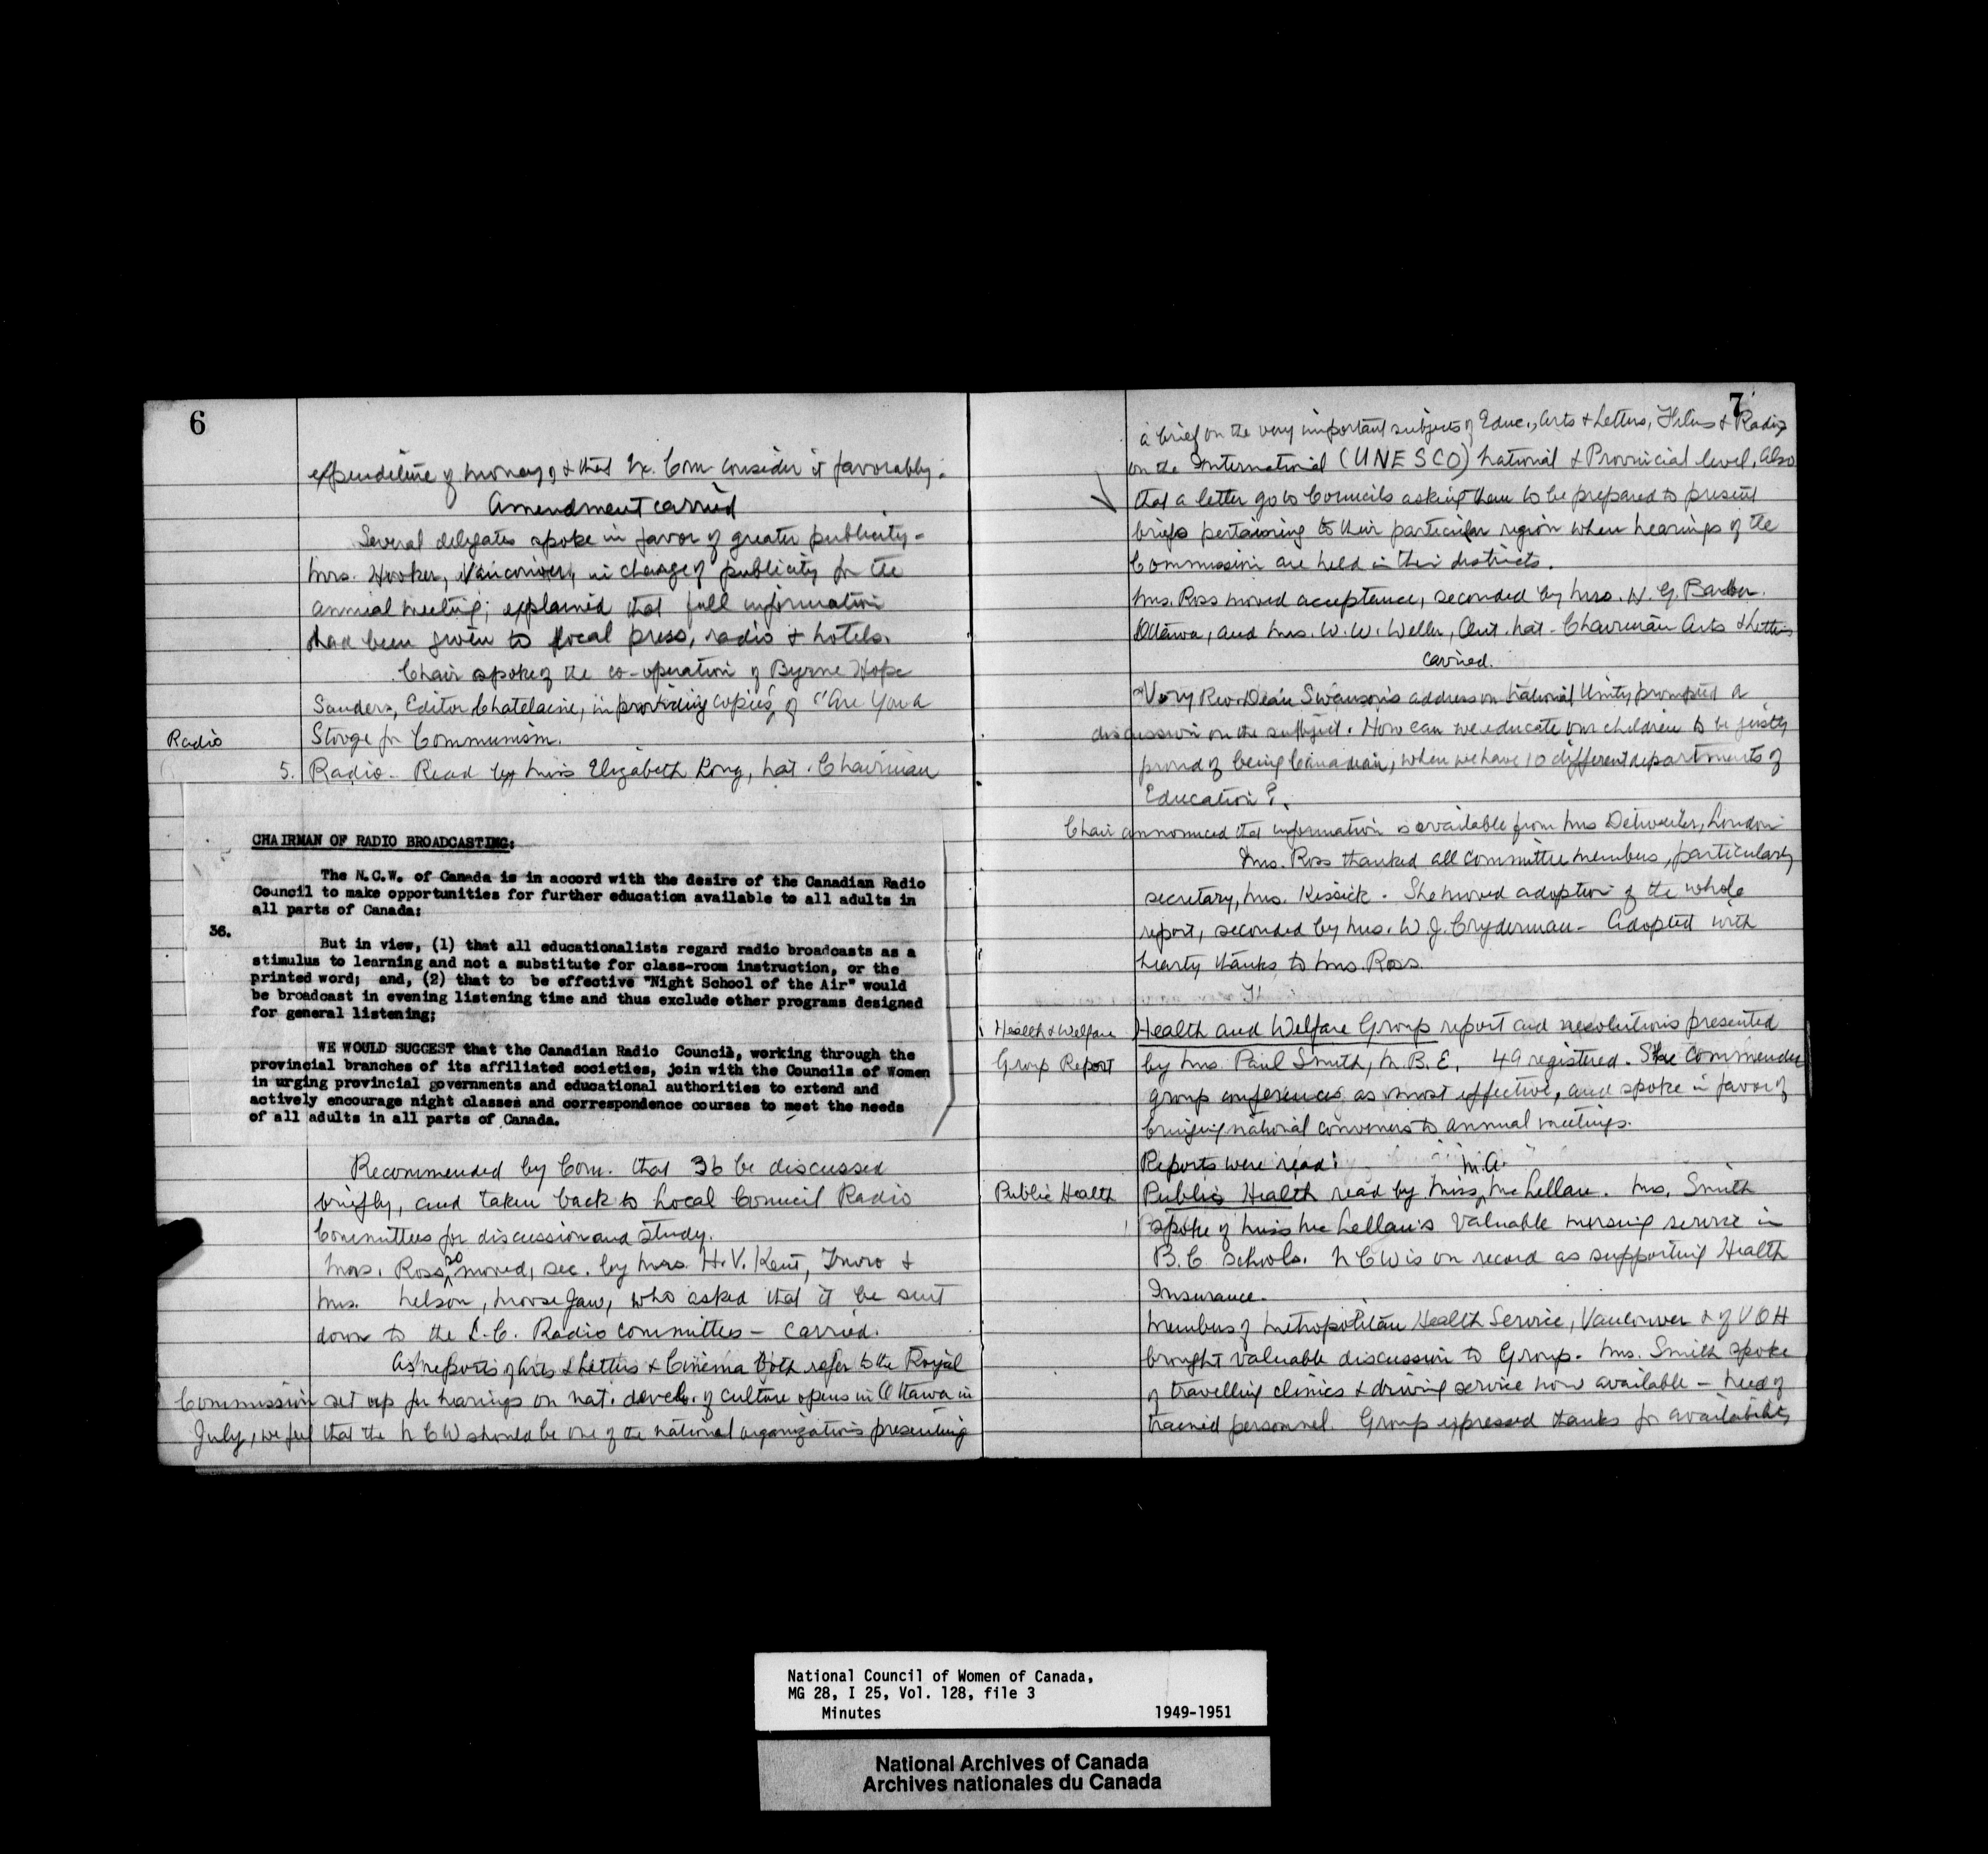 6
expenditure of money, & that Ex. Com consider it favorably.
Amendment carried
Several delegates spoke in favor of greater publicity -
Mrs. Hooker, Vancouver, in charge of publicity for the
annual meeting; explained that full information
had been given to local press, radio & hotels.
Chair spoke of the co-operation of Byrne Hope
Sanders, Editor Chatelaine, in providing copies of "Are You a
Radio
Stooge for Communism.
5. Radio - Read by Miss Elizabeth Long, Nat. Chairman
CHAIRMAN OF RADIO BROADCASTING:
The N.C.W. of Canada is in accord with the desire of the Canadian Radio
Council to make opportunities for further education available to all adults in
all parts of Canada:
36.
But in view, (1) that all educationalists regard radio broadcasts as a
stimulus to learning and not a substitute for class-room instruction, or the
printed word; and, (2) that to be effective "Night School of the Air" would
be broadcast in evening listening time and thus exclude other programs designed
for general listening;
WE WOULD SUGGEST that the Canadian Radio Council, working through the
provincial branches of its affiliated societies, join with the Councils of Women
in urging provincial governments and educational authorities to extend and
actively encourage night classes and correspondence courses to meet the needs
of all adults in all parts of Canada.
Recommended by Com. that 36 be discussed
briefly, and taken back to Local Council Radio
Committees for discussion and study.
Mrs. Ross so moved, sec. by Mrs. H. V. Kent, Truro &
Mrs. Nelson, Moose Jaw, who asked that it be sent
down to the L.C. Radio committees - carried.
As reports of Arts & Letters & Cinema both refer to the Royal
Commission set up for hearings on nat. devel. of culture opens in Ottawa in
July, we feel that the NCW should be one of the national organizations presenting
7
a brief on the very important subjects of Educ., Arts & Letters, Films & Radio
on the International (UNESCO) National & Provincial level. Also
that a letter go to Councils asking them to be prepared to present
briefs pertaining to their particular region when hearings of the
Commission are held in their districts.
Mrs. Ross moved acceptance, seconded by Mrs. H G. Barber.
Ottawa, and Mrs. W. W. Weller, Nat. Chairman Arts & Letters
carried.
Very Rev. Dean Swanson's address on National Unity prompted a
discussion on the subject. How can we educate our children to be justly
proud of being Canadian, when we have 10 different departments of
Education?
Chair announced that information is available from Mrs Detwiler, London
Mrs. Ross thanked all committee members, particularly
secretary, Mrs. Kissick. She moved adoption of the whole
report, seconded by Mrs. W. J. Cryderman - Adopted with
hearty thanks to Mrs. Ross.
Health & Welfare
Group Report
Health and Welfare Group report and resolutions presented
by Mrs. Paul Smith, M.B.E. 49 registered. She commended
group conferences as most effective, and spoke in favor of
bringing national conveners to annual meetings.
Reports were read:
Public Health
Public Health read by Miss M.A. McLellan. Mrs. Smith
spoke of Miss McLellan's valuable nursing service in
B.C. schools. NCW is on record as supporting Health
Insurance.
Members of Metropolitan Health Service, Vancouver & of VOH
brought valuable discussion to Group. Mrs. Smith spoke
of travelling clinics & driving service now available - need of
trained personnel. Group expressed thanks for availability
National Council of Women of Canada,
MG 28, I 25, Vol. 128, file 3
Minutes 1949-1951
National Archives of Canada
Archives nationales du Canada